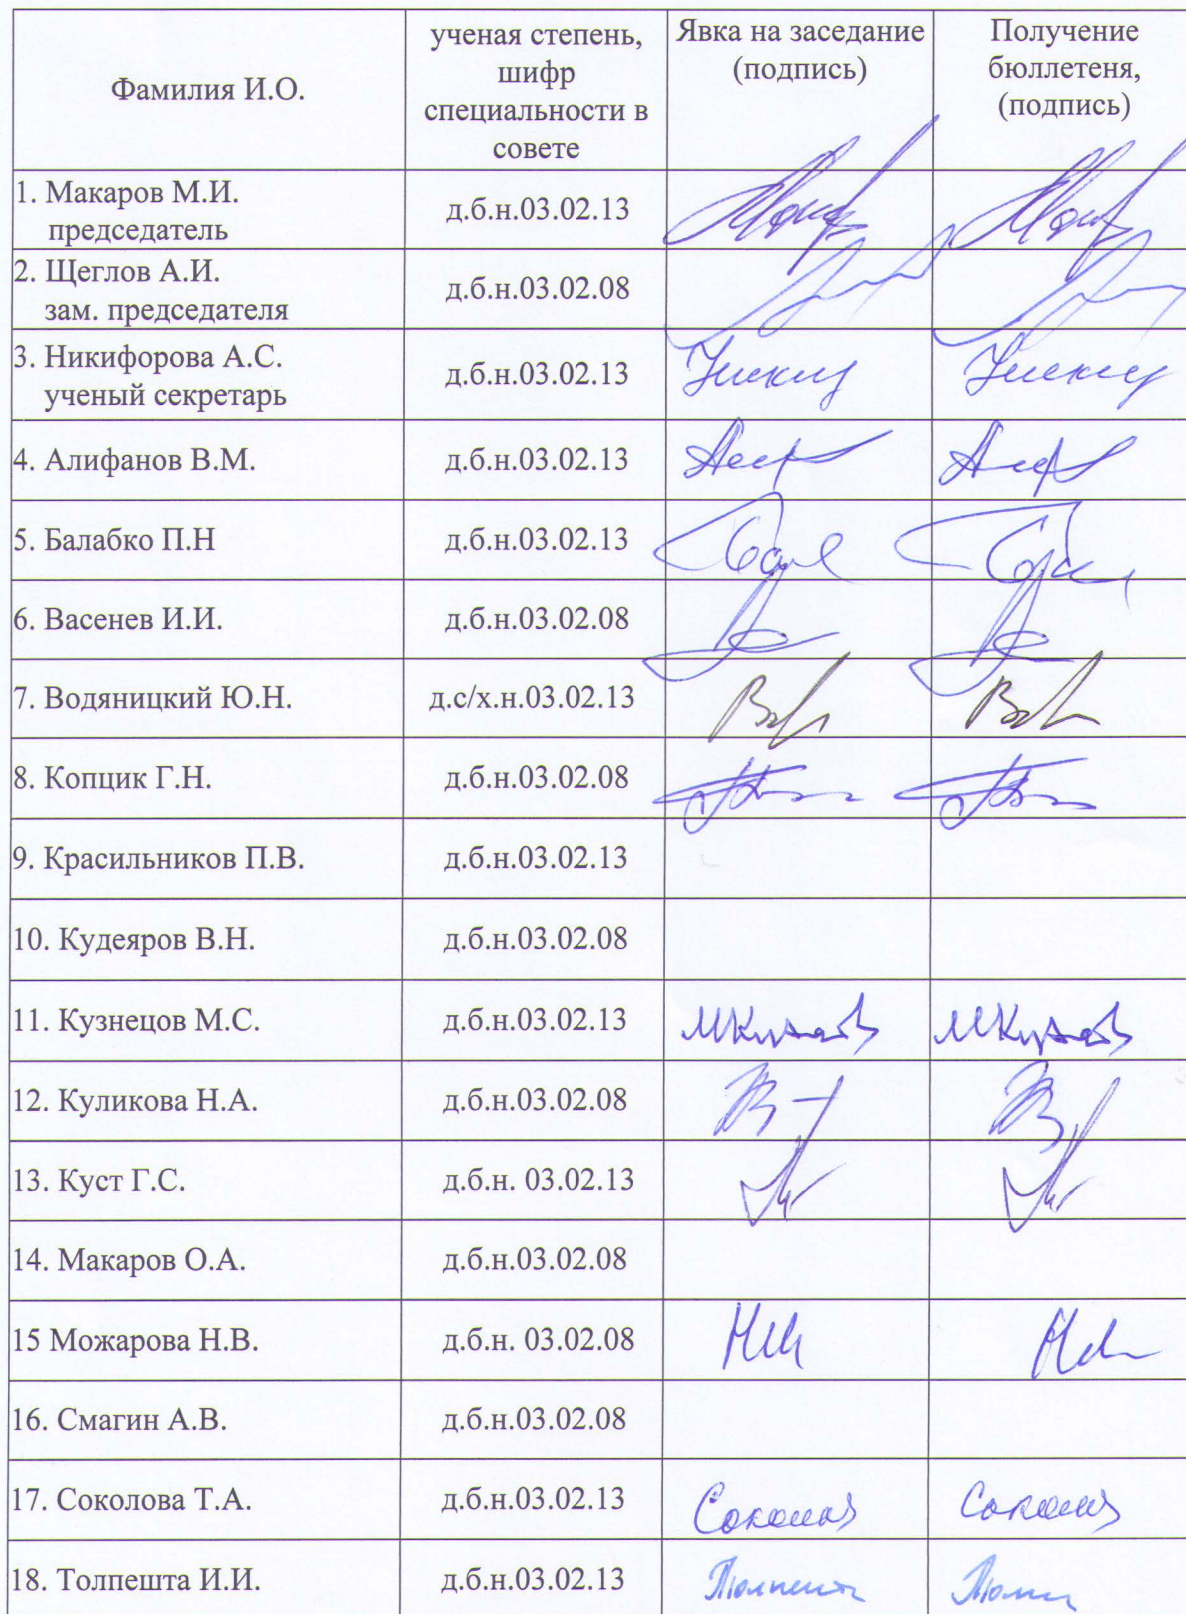 Фамилия И.О.
ученая степень,
шифр
специальности в
совете
Явка на заседание
(подпись)
Получение
бюллетеня,
(подпись)
1. Макаров М.И.
председатель
д.б.н.03.02.13
2. Щеглов А.И.
зам. председателя
д.б.н.03.02.08
3. Никифорова А.С.
ученый секретарь
д.б.н.03.02.13
4. Алифанов В.М.
д.б.н.03.02.13
5. Балабко П.Н
д.б.н.03.02.13
6. Васенев И.И.
д.б.н.03.02.08
7. Водяницкий Ю.Н.
д.с/х.н.03.02.13
8. Копцик Г.Н.
д.б.н.03.02.08
9. Красильников П.В.
д.б.н.03.02.13
10. Кудеяров В.Н.
д.б.н.03.02.08
11. Кузнецов М.С.
д.б.н.03.02.13
12. Куликова Н.А.
д.б.н.03.02.08
13. Куст Г.С.
д.б.н. 03.02.13
14. Макаров О.А.
д.б.н.03.02.08
15 Можарова Н.В.
д.б.н. 03.02.08
16. Смагин А.В.
д.б.н.03.02.08
17. Соколова Т.А.
д.б.н.03.02.13
18. Толпешта И.И.
д.б.н.03.02.13